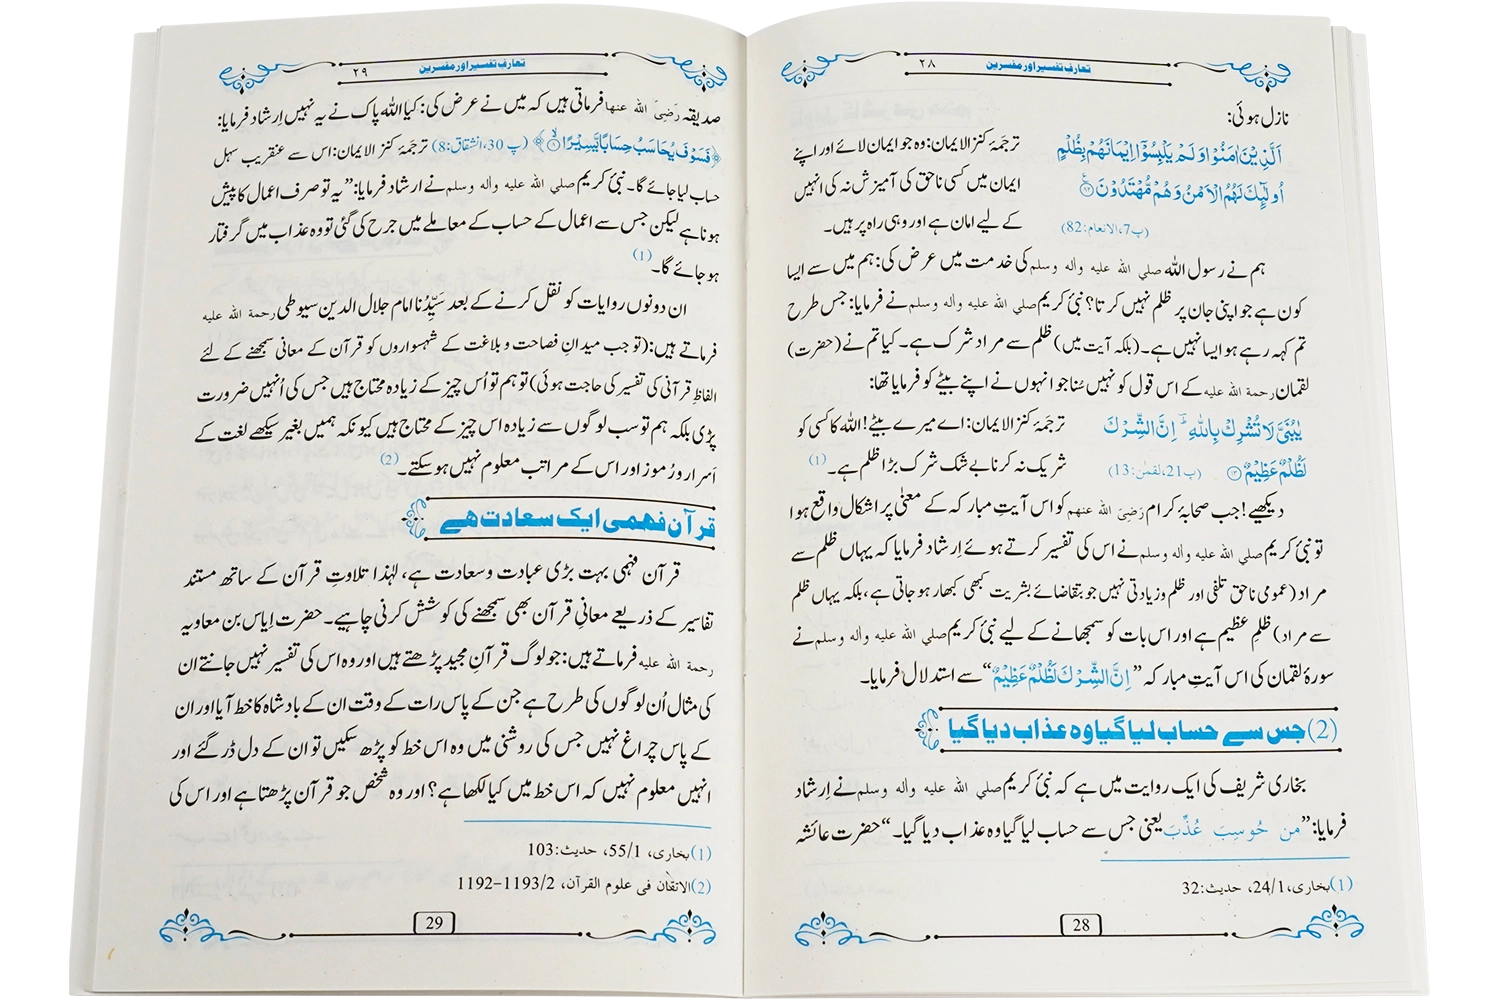 ۲۸
تعارف تفسیر اور مفسرین
نازل ہوئی:
اَلَّذِیْنَ اٰمَنُوْا وَ لَمْ یَلْبِسُوْۤا اِیْمَانَهُمْ بِظُلْمٍ
اُولٰٓىٕكَ لَهُمُ الْاَمْنُ وَ هُمْ مُّهْتَدُوْنَ۠(۸۲)
(پ7، الانعام:82)
ترجَمۂ کنز الایمان: وہ جو ایمان لائے اور اپنے
ایمان میں کسی ناحق کی آمیزش نہ کی انہیں
کے لیے امان ہے اور وہی راہ پر ہیں۔
ہم نے رسول اللہ صلی اللہ علیہ واٰلہ وسلم کی خدمت میں عرض کی: ہم میں سے ایسا
کون ہے جو اپنی جان پر ظلم نہیں کرتا؟ نبیِّ کریم صلی اللہ علیہ واٰلہ وسلم نے فرمایا: جس طرح
تم کہہ رہے ہو ایسا نہیں ہے۔ (بلکہ آیت میں) ظلم سے مراد شرک ہے۔ کیا تم نے (حضرت)
لقمان رحمۃ اللہ علیہ کے اس قول کو نہیں سُنا جو انہوں نے اپنے بیٹے کو فرمایا تھا:
یٰبُنَیَّ لَا تُشْرِكْ بِاللّٰهِ ﳳ اِنَّ الشِّرْكَ
لَظُلْمٌ عَظِیْمٌ(۱۳)
(پ21، لقمٰن:13)
ترجَمۂ کنز الایمان: اے میرے بیٹے! اللہ کا کسی کو
شریک نہ کرنا بے شک شرک بڑا ظلم ہے۔ (1)
دیکھیے! جب صحابۂ کرام رَضِیَ اللہ عنھم کو اس آیتِ مبارکہ کے معنیٰ پر اشکال واقع ہوا
تو نبیِّ کریم صلی اللہ علیہ واٰلہ وسلم نے اس کی تفسیر کرتے ہوئے اِرشاد فرمایا کہ یہاں ظلم سے
مراد (عمومی ناحق تلفی اور ظلم و زیادتی نہیں جو بتقاضائے بشریت کبھی کبھار ہو جاتی ہے، بلکہ یہاں ظلم
سے مراد) ظلمِ عظیم ہے اور اس بات کو سمجھانے کے لیے نبیِّ کریم صلی اللہ علیہ واٰلہ وسلم نے
سورۂ لقمان کی اس آیتِ مبارکہ ”اِنَّ الشِّرْكَ لَظُلْمٌ عَظِیْمٌ“ سے استدلال فرمایا۔
(2) جس سے حساب لیا گیا وہ عذاب دیا گیا
بخاری شریف کی ایک روایت میں ہے کہ نبیِّ کریم صلی اللہ علیہ واٰلہ وسلم نے اِرشاد
فرمایا: ”من حُوسِبَ عُذِّبَ یعنی جس سے حساب لیا گیا وہ عذاب دیا گیا۔“ حضرت عائشہ
(1) بخاری، 24/1، حدیث:32
28
۲۹
تعارف تفسیر اور مفسرین
صدیقہ رَضِیَ اللہ عنھا فرماتی ہیں کہ میں نے عرض کی: کیا اللہ پاک نے یہ نہیں اِرشاد فرمایا:
﴿فَسَوْفَ یُحَاسَبُ حِسَابًا یَّسِیْرًاۙ(۸)﴾ (پ 30، انشقاق:8) ترجَمۂ کنز الایمان: اس سے عنقریب سہل
حساب لیا جائے گا۔ نبیِّ کریم صلی اللہ علیہ واٰلہ وسلم نے ارشاد فرمایا: ”یہ تو صرف اعمال کا پیش
ہونا ہے لیکن جس سے اعمال کے حساب کے معاملے میں جرح کی گئی تو وہ عذاب میں گرفتار
ہو جائے گا۔ (1)
ان دونوں روایات کو نقل کرنے کے بعد سَیِّدُنا امام جلال الدین سیوطی رحمۃ اللہ علیہ
فرماتے ہیں: (تو جب میدانِ فصاحت و بلاغت کے شہسواروں کو قرآن کے معانی سمجھنے کے لئے
الفاظِ قرآنی کی تفسیر کی حاجت ہوئی) تو ہم تو اُس چیز کے زیادہ محتاج ہیں جس کی اُنہیں ضرورت
پڑی بلکہ ہم تو سب لوگوں سے زیادہ اس چیز کے محتاج ہیں کیونکہ ہمیں بغیر سیکھے لغت کے
اَسرار و رُموز اور اس کے مراتب معلوم نہیں ہو سکتے۔ (2)
قرآن فہمی ایک سعادت ہے
قرآن فہمی بہت بڑی عبادت و سعادت ہے، لہٰذا تلاوتِ قرآن کے ساتھ مستند
تفاسیر کے ذریعے معانیِ قرآن بھی سمجھنے کی کوشش کرنی چاہیے۔ حضرت اِیاس بن معاویہ
رحمۃ اللہ علیہ فرماتے ہیں: جو لوگ قرآنِ مجید پڑھتے ہیں اور وہ اس کی تفسیر نہیں جانتے ان
کی مثال اُن لوگوں کی طرح ہے جن کے پاس رات کے وقت ان کے بادشاہ کا خط آیا اور ان
کے پاس چراغ نہیں جس کی روشنی میں وہ اس خط کو پڑھ سکیں تو ان کے دل ڈر گئے اور
انہیں معلوم نہیں کہ اس خط میں کیا لکھا ہے؟ اور وہ شخص جو قرآن پڑھتا ہے اور اس کی
(1) بخاری، 55/1، حدیث:103
(2) الاتقان فی علوم القرآن، 1192-1193/2
29